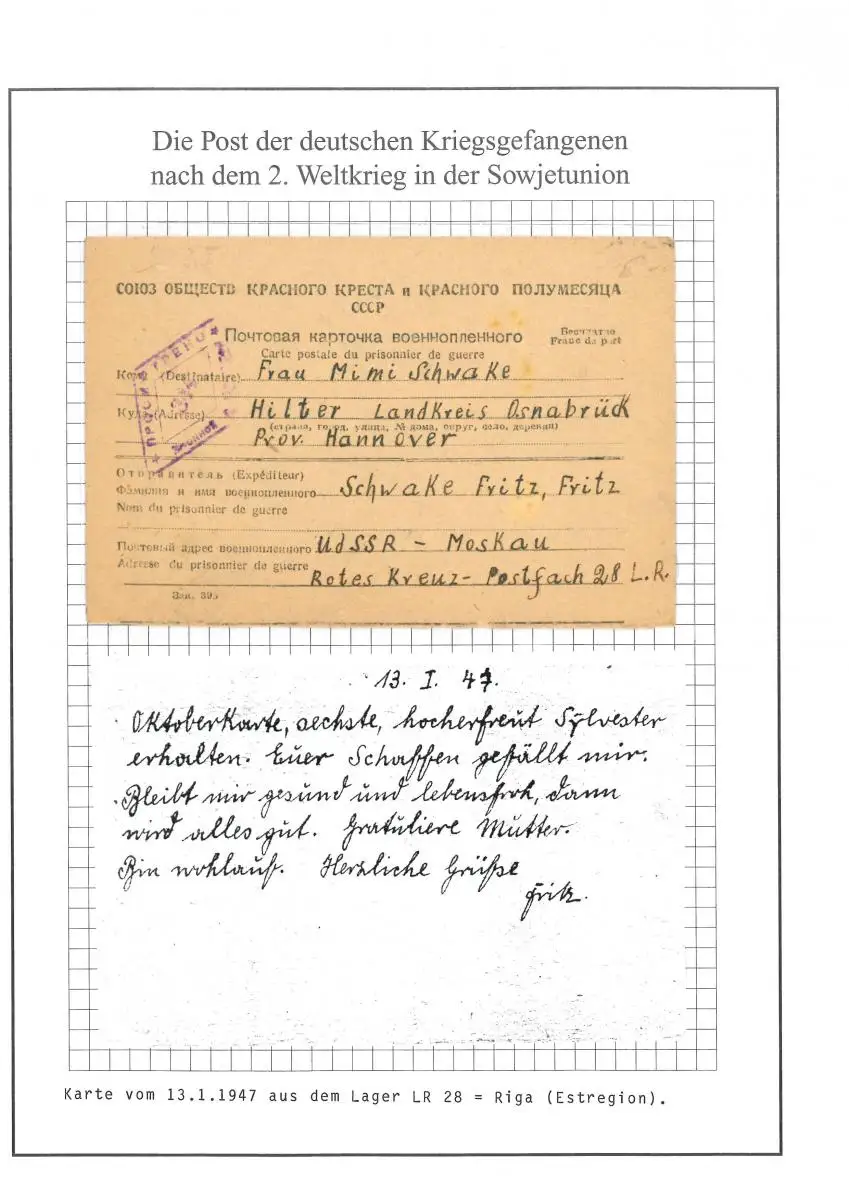 Die Post der deutschen Kriegsgefangenen
nach dem 2. Weltkrieg in der Sowjetunion
СОЮЗ ОБЩЕСТВ КРАСНОГО КРЕСТА и КРАСНОГО ПОЛУМЕСЯЦА
СССР
Почтовая карточка военнопленного
Бесплатно
Franc de port
Carte postale du prisonnier de guerre
Кому (Destinataire) Frau Mimi Schwake
Куда (Adresse) Hilter Landkreis Osnabrück
(страна, город, улица, № дома, округ, село, деревня)
Prov. Hannover
Отправитель (Expéditeur)
Фамилия и имя военнопленного Schwake Fritz, Fritz
Nom du prisonnier de guerre
Почтовый адрес военнопленного UdSSR - Moskau
Adresse du prisonnier de guerre Rotes Kreuz - Postfach 28 L.R.
Зак. 395
13. I. 47.
Oktoberkarte, sechste, hocherfreut Sylvester
erhalten. Euer Schaffen gefällt mir.
Bleibt mir gesund und lebensfroh, dann
wird alles gut. Gratuliere Mutter.
Bin wohlauf. Herzliche Grüße
Fritz.
Karte vom 13.1.1947 aus dem Lager LR 28 = Riga (Estregion).